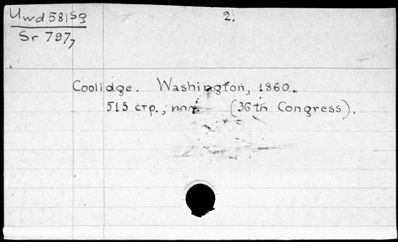 Uwd 58159
2.
Sr 797,
Coolidge. Washington, 1860.
515 стр.; илл. (36th Congress).